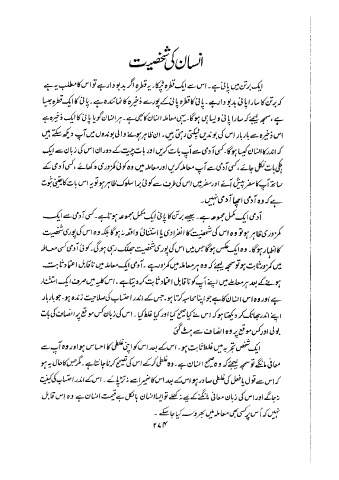 انسان کی شخصیت
ایک برتن میں پانی ہے۔ اس سے ایک قطرہ ٹپکا۔ یہ قطرہ اگر بدبودار ہے تو اس کا مطلب یہ ہے
کہ برتن کا سارا پانی بدبودار ہے۔ پانی کا قطرہ پانی کے پورے ذخیرہ کا نمائندہ ہے۔ پانی کا ایک قطرہ جیسا
ہے، سمجھ لیجئے کہ سارا پانی ویسا ہی ہوگا۔ یہی معاملہ انسان کا بھی ہے۔ ہر انسان گویا پانی کا ایک ذخیرہ ہے
اس ذخیرہ سے بار بار اس کی بوندیں ٹپکتی رہتی ہیں۔ ان ظاہر ہونے والی بوندوں میں آپ دیکھ سکتے ہیں
کہ اندر کا انسان کیسا ہوگا۔ کسی آدمی سے آپ بات کریں اور بات چیت کے دوران اس کی زبان سے ایک
ہلکی بات نکل جائے، کسی آدمی سے آپ معاملہ کریں اور معاملہ میں وہ کوئی کمزوری دکھائے، کسی آدمی کے
ساتھ آپ کا سفر پیش آئے اور سفر میں اس کی طرف سے کوئی برا سلوک ظاہر ہو تو یہ اس بات کا یقینی ثبوت
ہے کہ وہ آدمی اچھا آدمی نہیں۔
آدمی ایک مکمل مجموعہ ہے۔ جیسے برتن کا پانی ایک مکمل مجموعہ ہوتا ہے۔ کسی آدمی سے ایک
کمزوری ظاہر ہو تو وہ اس کی شخصیت کا انفرادی یا استثنائی واقعہ نہ ہوگا بلکہ وہ اس کی پوری شخصیت
کا اظہار ہوگا۔ وہ ایک عکس ہوگا جس میں اس کی پوری شخصیت جھلک رہی ہوگی۔ کوئی آدمی کسی معاملہ
میں کمزور ثابت ہو تو سمجھ لیجئے کہ وہ ہر معاملہ میں کمزور ہے۔ آدمی ایک معاملہ میں ناقابل اعتماد ثابت
ہونے کے بعد ہر معاملے میں اپنے آپ کو ناقابل اعتماد ثابت کر دیتا ہے۔ اس کلیہ میں صرف ایک استثنا
ہے اور وہ اس انسان کا ہے جو اپنا محاسبہ کرتا ہو۔ جس کے اندر احتساب کی صلاحیت زندہ ہو۔ جو بار بار
اپنے اندر جھانک کر دیکھتا ہو کہ اس نے کیا صحیح کیا اور کیا غلط کیا۔ اس کی زبان کس موقع پر انصاف کی بات
بولی اور کس موقع پر وہ انصاف سے ہٹ گئی۔
ایک شخص تجربہ میں غلط ثابت ہو۔ اس کے بعد اس کو اپنی غلطی کا احساس ہو اور وہ آپ سے
معافی مانگے تو سمجھ لیجئے کہ وہ صحیح انسان ہے۔ وہ غلطی کر کے اس کی تصحیح کرنا جانتا ہے۔ مگر جس کا حال یہ ہو کہ
اس سے قول یا فعل کی غلطی صادر ہو اس کے بعد اس کا ضمیر اسے نہ تڑپائے۔ اس کے اندر احتساب کی کیفیت
نہ جاگے اور اس کی زبان معافی مانگنے کے لیے نہ کھلے تو ایسا انسان بالکل بے قیمت انسان ہے وہ اس قابل
نہیں کہ اس پر کسی بھی معاملہ میں بھروسہ کیا جا سکے۔
۲۷۴